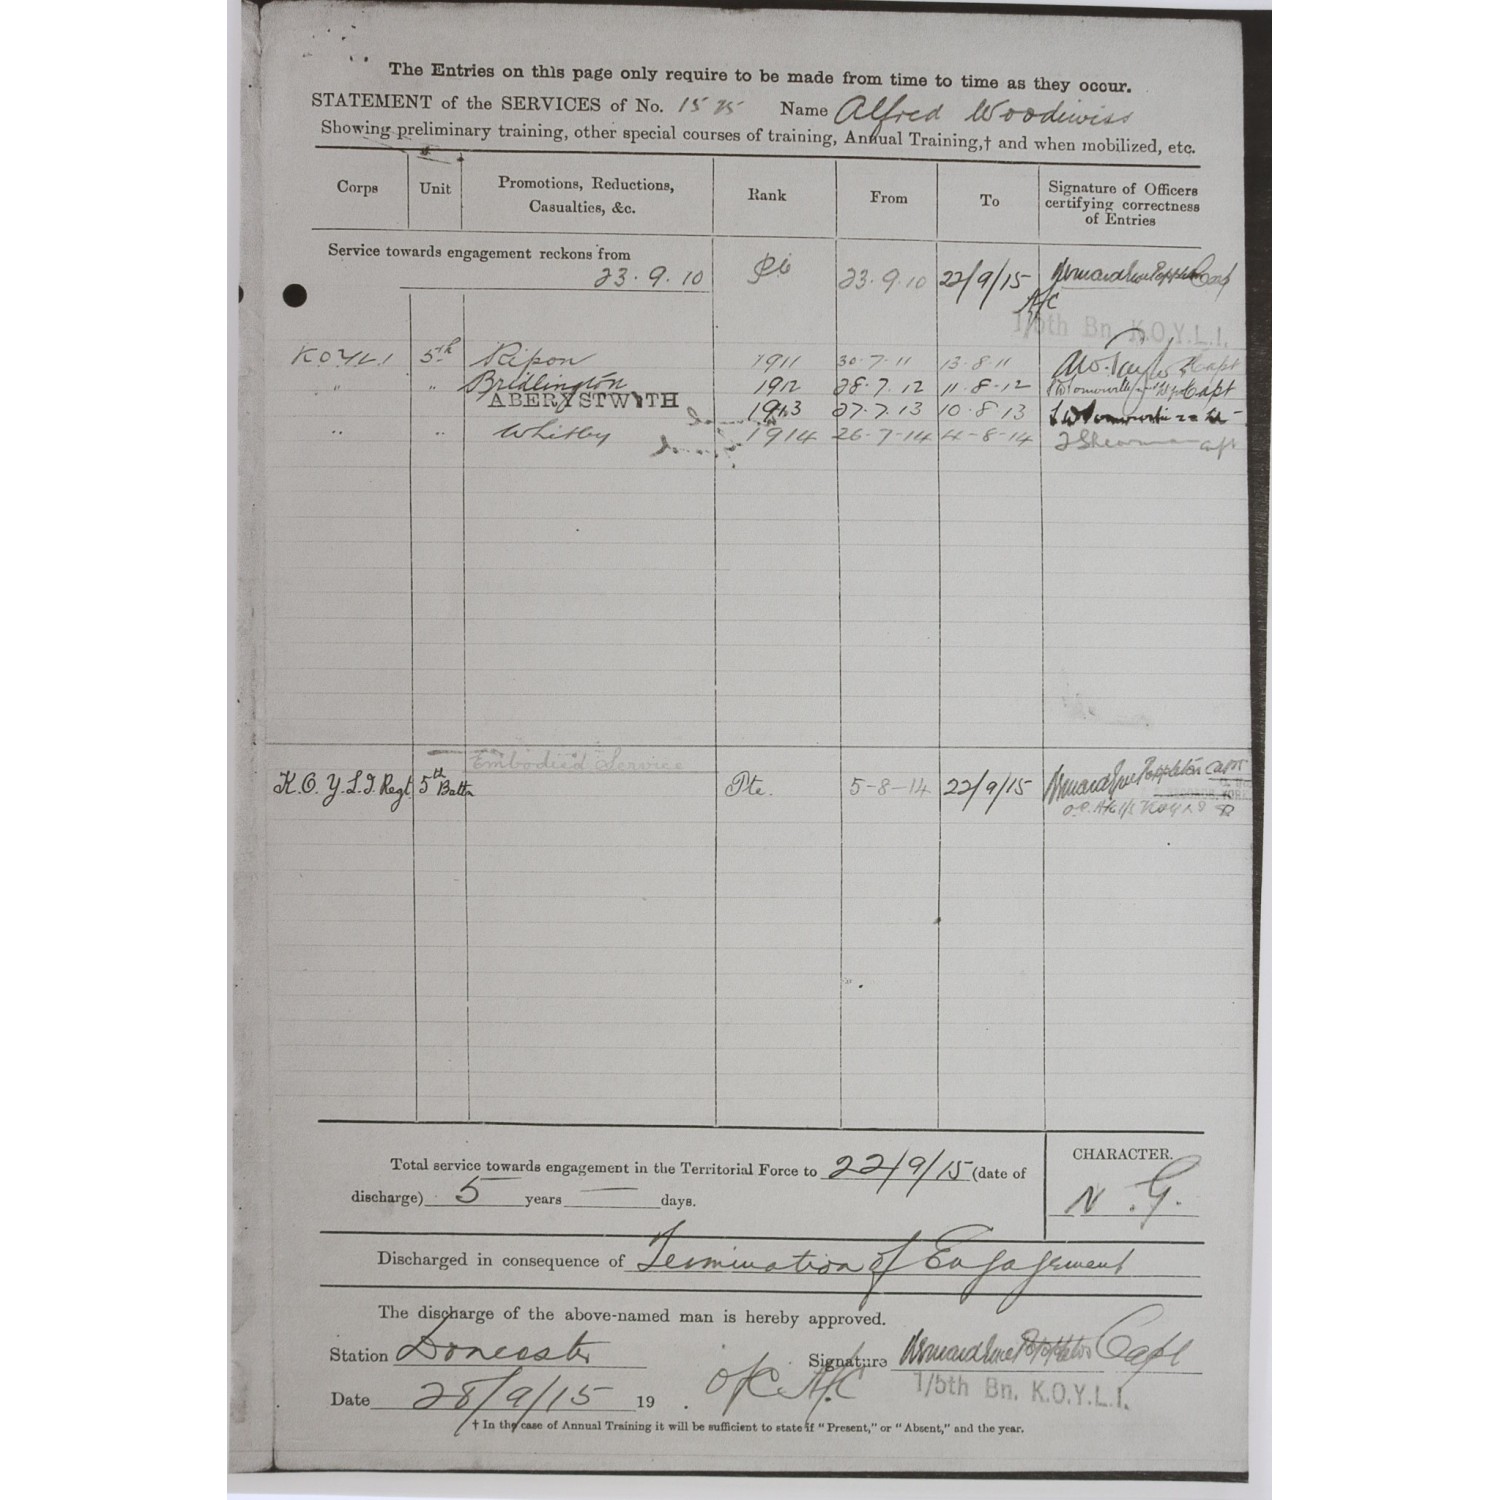 The Entries on this page only require to be made from time to time as they occur.
STATEMENT of the SERVICES of No. 1575 Name Alfred Woodiwiss
Showing preliminary training, other special courses of training, Annual Training,† and when mobilized, etc.
Corps Unit Promotions, Reductions, Casualties, &c. Rank From To Signature of Officers certifying correctness of Entries
Service towards engagement reckons from
23.9.10 Pte 23.9.10 22/9/15 Capt
A/C
1/5th Bn. K.O.Y.L.I.
KOYLI 5th Ripon 1911 30-7-11 13-8-11 Capt
" " Bridlington 1912 28.7.12 11-8-12 Capt
ABERYSTWYTH 1913 27.7.13 10.8.13
" " Whitby 1914 26-7-14 4-8-14 Capt
Embodied Service
K.O.Y.L.I. Regt 5th Battn Pte. 5-8-14 22/9/15 Poppleton Capt
Total service towards engagement in the Territorial Force to 22/9/15 (date of
discharge) 5 years — days.
CHARACTER.
N.G.
Discharged in consequence of Termination of Engagement
The discharge of the above-named man is hereby approved.
Station Doncaster Signature Poppleton Capt
o/c A/C 1/5th Bn. K.O.Y.L.I.
Date 28/9/15 19 .
† In the case of Annual Training it will be sufficient to state if "Present," or "Absent," and the year.